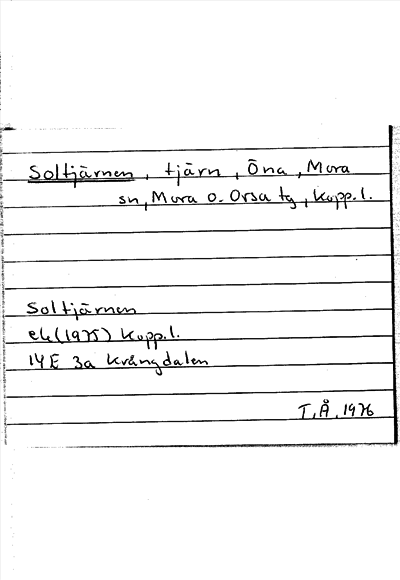 Soltjärnen, tjärn, Öna, Mora
sn, Mora o. Orsa tg, Kopp. l.
Soltjärnen
ek (1975) Kopp. l.
14E 3a Kvångdalen
T. Å. 1976